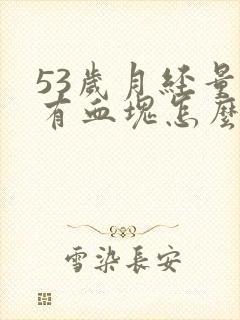 53歲月經量
有血塊怎麼
雪染長安